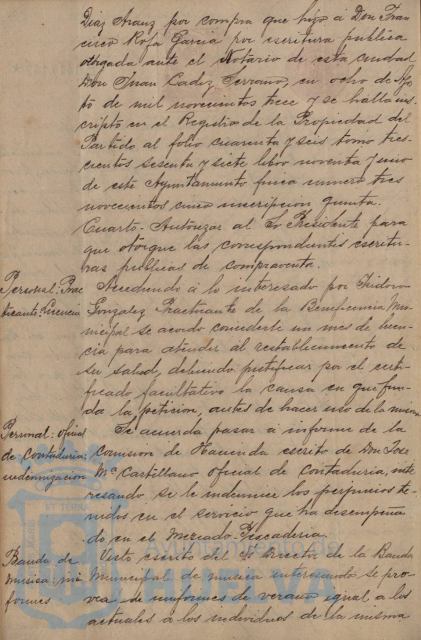 Diaz Aranz por compra que hizo á Don Fran
cisco Rofa Garcia por escritura publica
otorgada ante el Notario de esta ciudad
Don Juan Cadiz Serrano, en ocho de Ags
to de mil novecientos trece y se halla ins
cripto en el Registro de la Propiedad del
Partido al folio cuarenta y seis tomo tres-
cientos sesenta y siete libro noventa y uno
de este Ayuntamiento finca numero tres
novecientos cinco inscripcion quinta.
Cuarto - Autorizar al Sr Presidente para
que otorgue las correspondientes escritu-
ras publicas de compraventa.
Personal: Prac
ticante: Licencia
Accediendo á lo interesado por Isidoro
Gonzalez Practicante de la Beneficencia Mu-
nicipal se acordo concederle un mes de licen-
cia para atender al restablecimiento de
su salud, debiendo justificar por el certi-
ficado facultativo la causa en que fun-
da la peticion, antes de hacer uso de la misma
Personal: oficial
de contaduria:
indemnizacion
Se acuerda pasar á informe de la
Comision de Hacienda escrito de Don Jose
Mª Castillano oficial de Contaduria, inte
resando se le indemnice los perjuicios te-
nidos en el servicio que ha desempeña
do en el Mercado-Pescaderia
Banda de
musica: uni
formes
Visto escrito del Sr Director de la Banda
Municipal de musica interesando se pro-
vea de uniformes de verano igual a los
actuales á los individuos de la misma